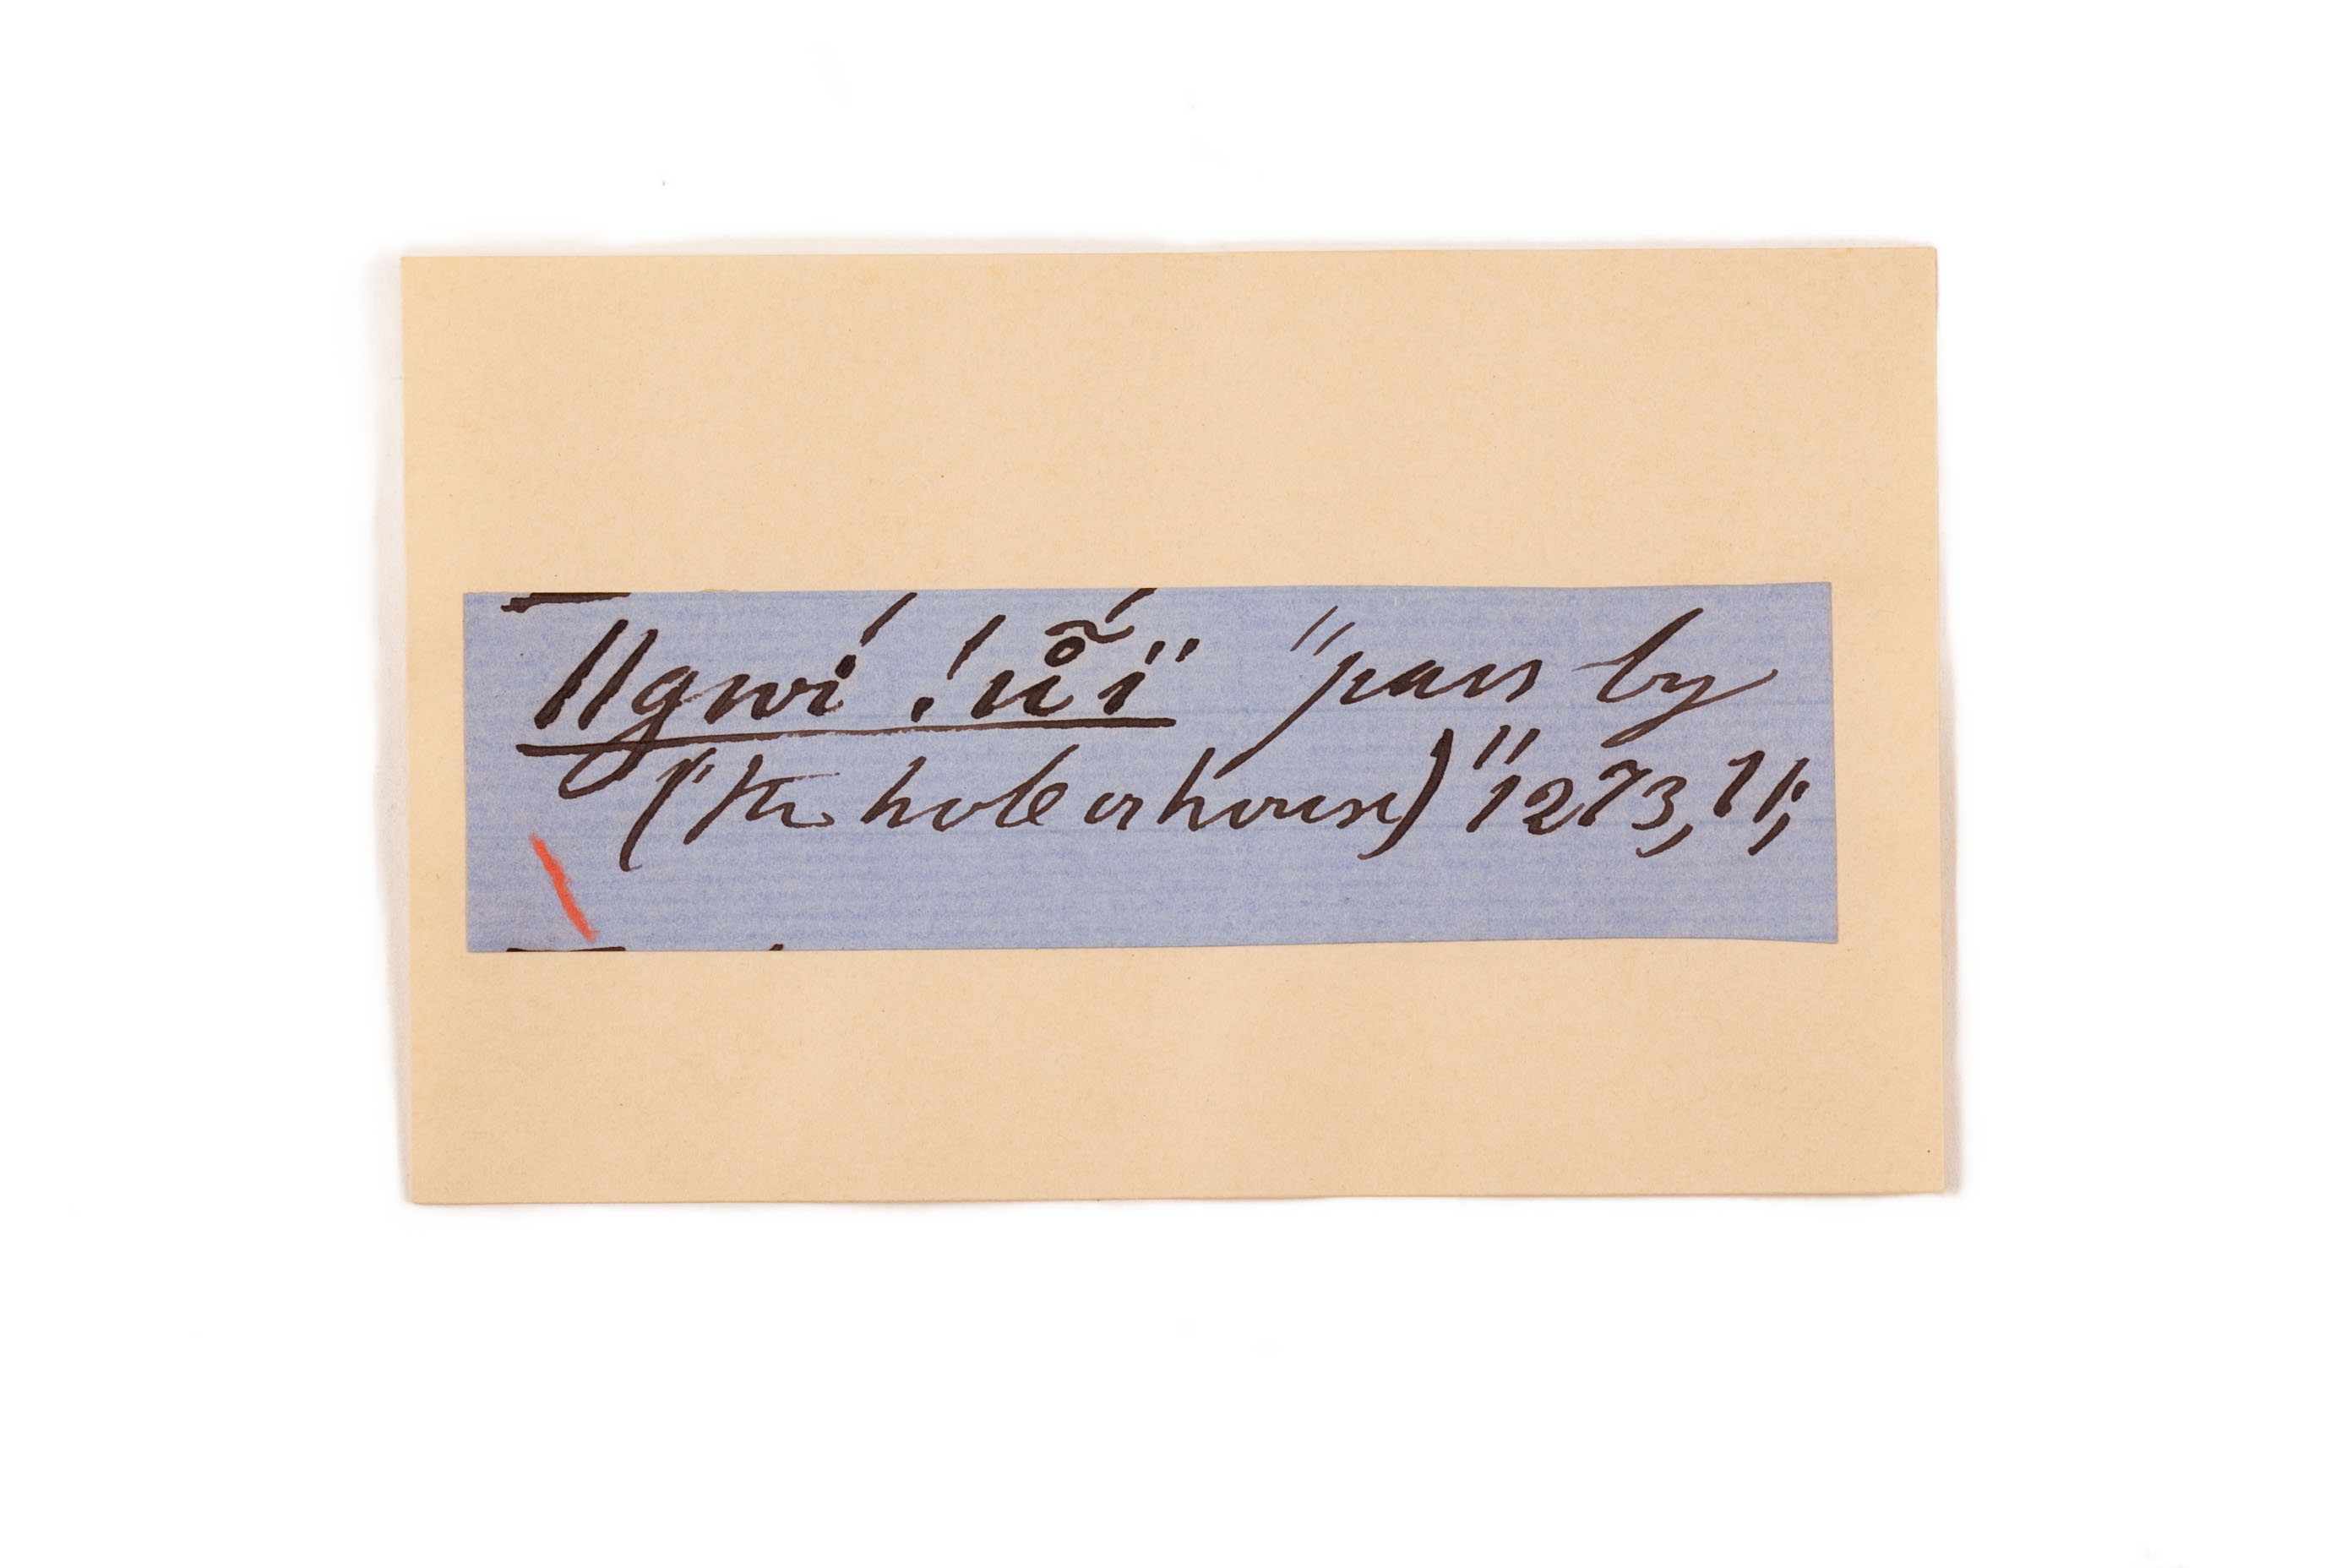 ǁgwí !ů̃í" "pass by
("the hole or house)" 1273, 71;